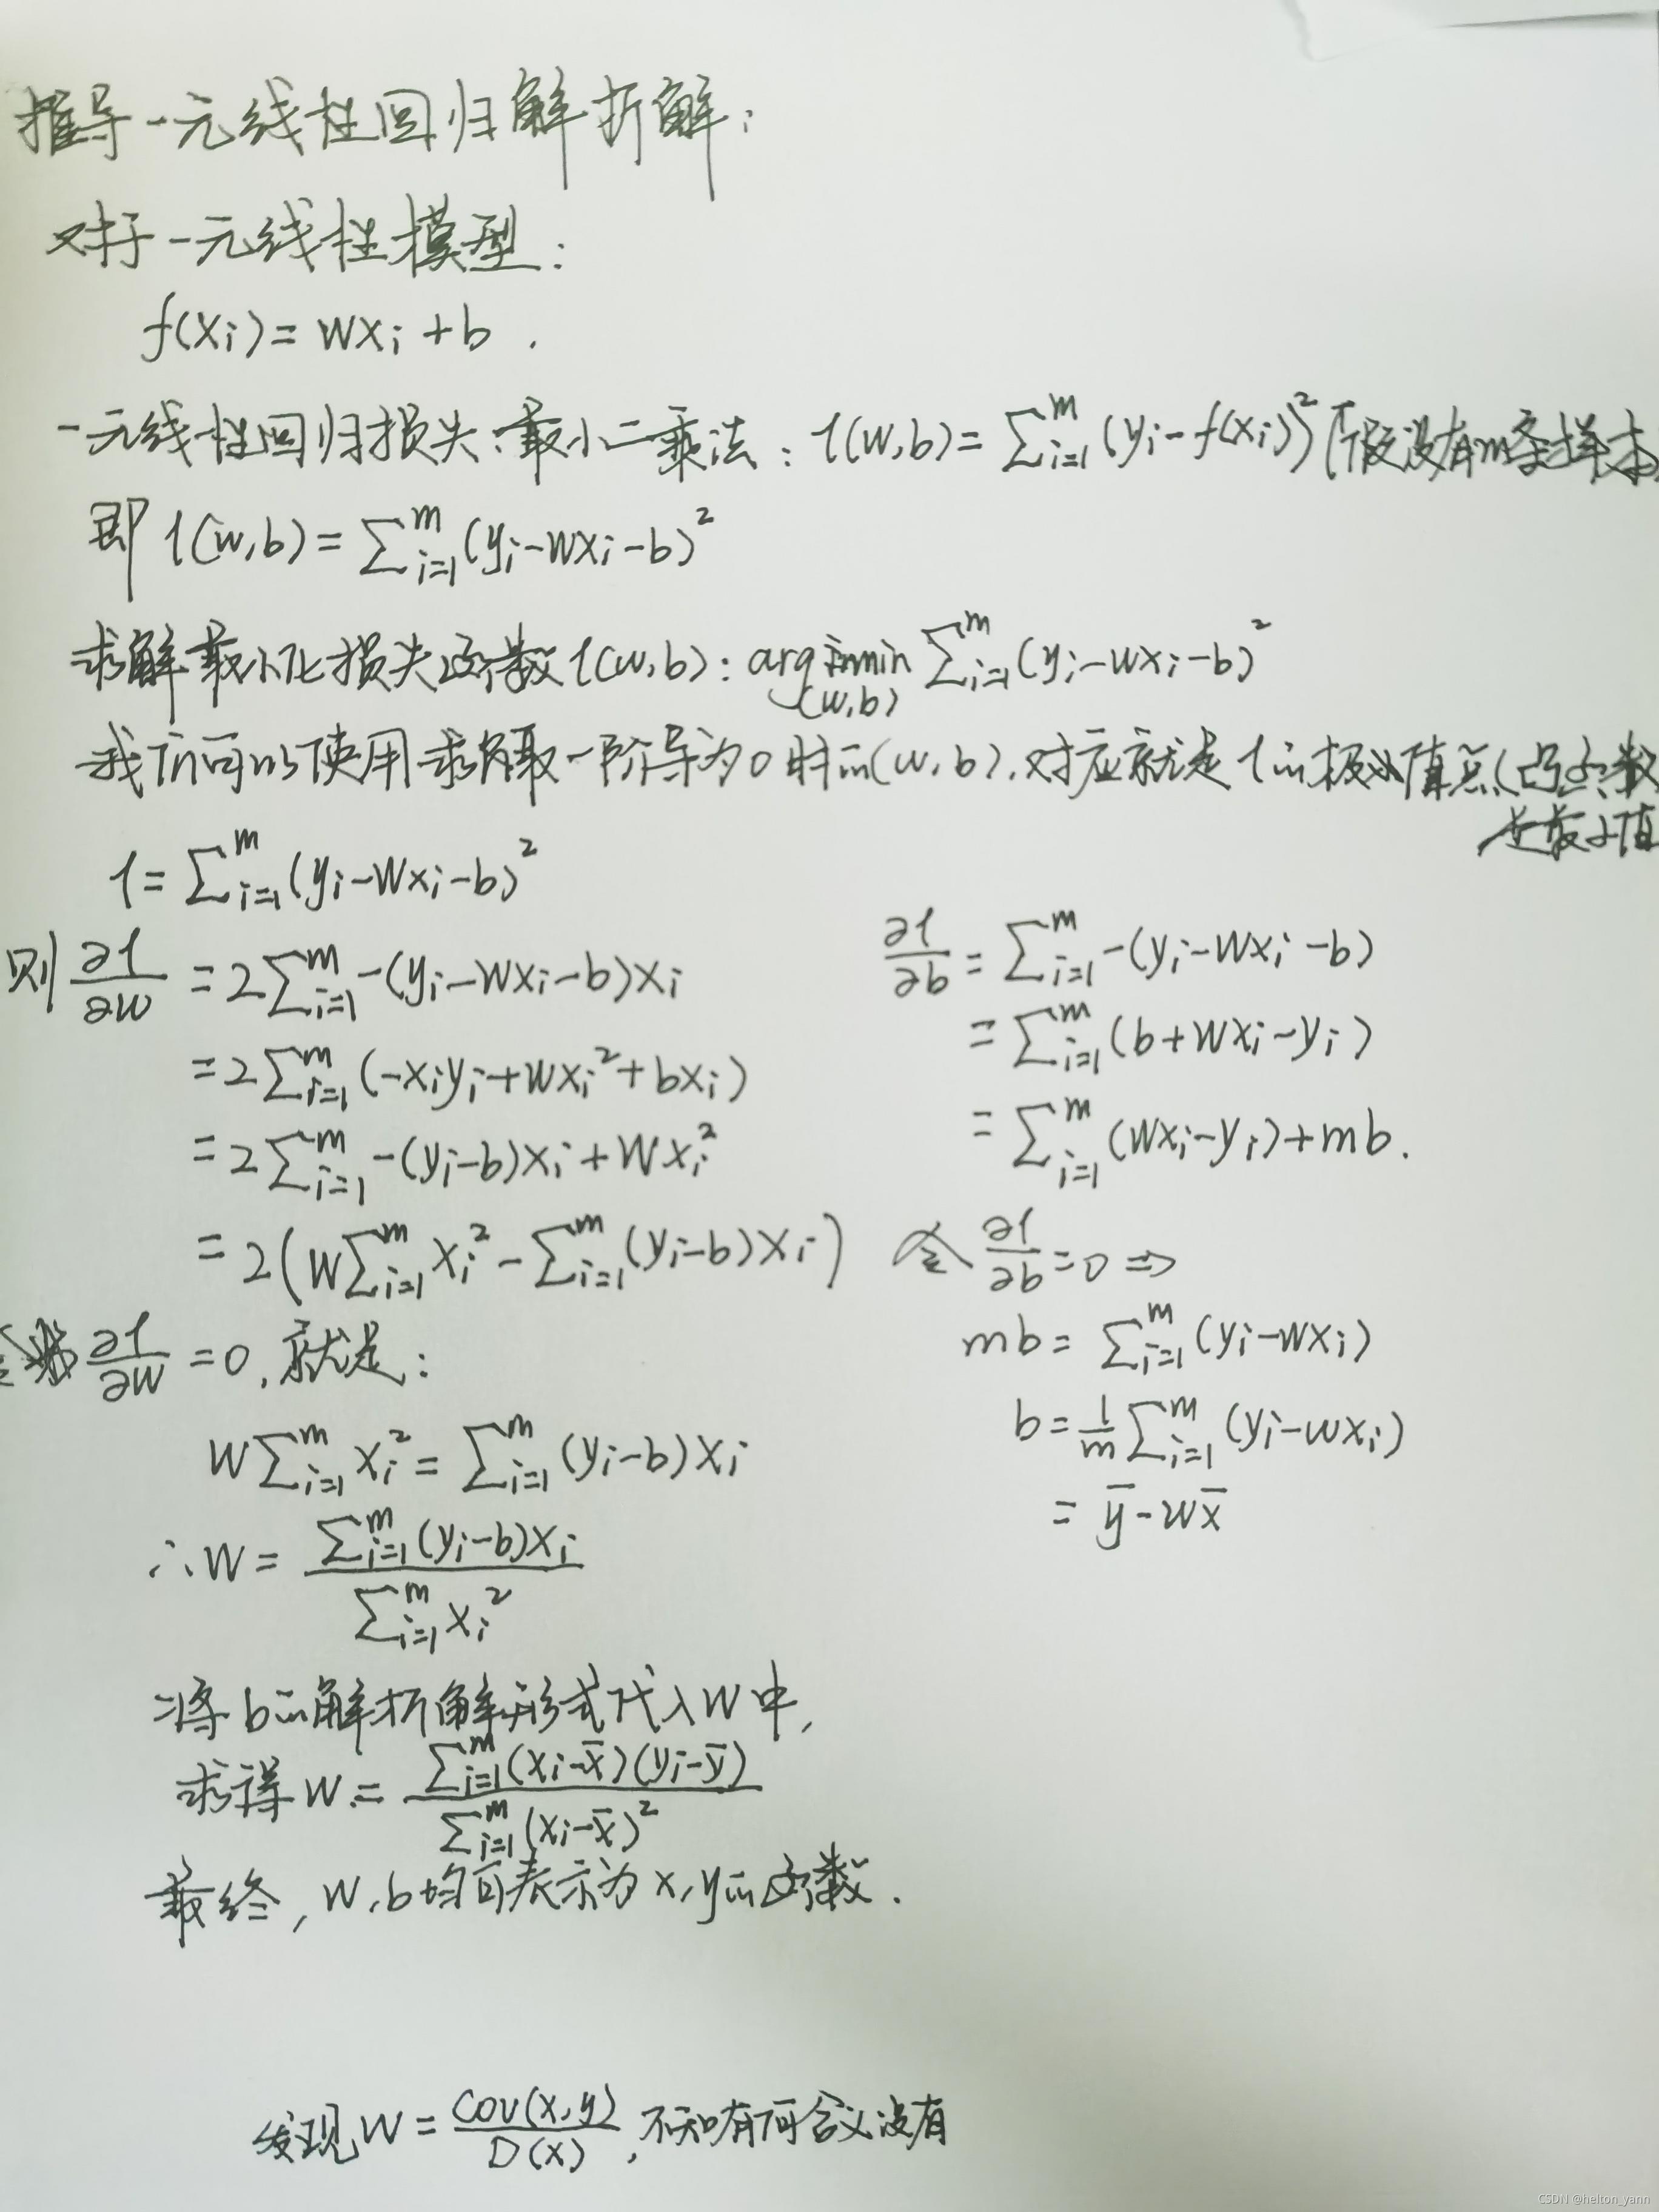 推导一元线性回归解折解:
对于一元线性模型:
f(xᵢ)=wxᵢ+b.
一元线性回归损失:最小二乘法: l(w,b)=∑ᵢ₌₁ᵐ(yᵢ-f(xᵢ))² (假设有m条样本)
即 l(w,b)=∑ᵢ₌₁ᵐ(yᵢ-wxᵢ-b)²
求解最小化损失函数l(w,b): arg min(w,b) ∑ᵢ₌₁ᵐ(yᵢ-wxᵢ-b)²
我们可以使用求取一阶导为0时的(w,b),对应就是l的极小值点(凸函数
是最小值
l=∑ᵢ₌₁ᵐ(yᵢ-wxᵢ-b)²
则 ∂l/∂w =2∑ᵢ₌₁ᵐ-(yᵢ-wxᵢ-b)xᵢ
=2∑ᵢ₌₁ᵐ(-xᵢyᵢ+wxᵢ²+bxᵢ)
=2∑ᵢ₌₁ᵐ-(yᵢ-b)xᵢ+wxᵢ²
=2(w∑ᵢ₌₁ᵐxᵢ²-∑ᵢ₌₁ᵐ(yᵢ-b)xᵢ)
令 ∂l/∂w =0,就是:
w∑ᵢ₌₁ᵐxᵢ²=∑ᵢ₌₁ᵐ(yᵢ-b)xᵢ
∴w= ∑ᵢ₌₁ᵐ(yᵢ-b)xᵢ / ∑ᵢ₌₁ᵐxᵢ²
∂l/∂b =∑ᵢ₌₁ᵐ-(yᵢ-wxᵢ-b)
=∑ᵢ₌₁ᵐ(b+wxᵢ-yᵢ)
=∑ᵢ₌₁ᵐ(wxᵢ-yᵢ)+mb.
令 ∂l/∂b =0 ⇒
mb=∑ᵢ₌₁ᵐ(yᵢ-wxᵢ)
b=1/m ∑ᵢ₌₁ᵐ(yᵢ-wxᵢ)
=ȳ-wx̄
将b的解析解形式代入w中,
求得w= ∑ᵢ₌₁ᵐ(xᵢ-x̄)(yᵢ-ȳ) / ∑ᵢ₌₁ᵐ(xᵢ-x̄)²
最终,w,b均可表示为x,y的函数.
发现w= cov(x,y) / D(x) ,不知有何含义没有
CSDN @helton_yann